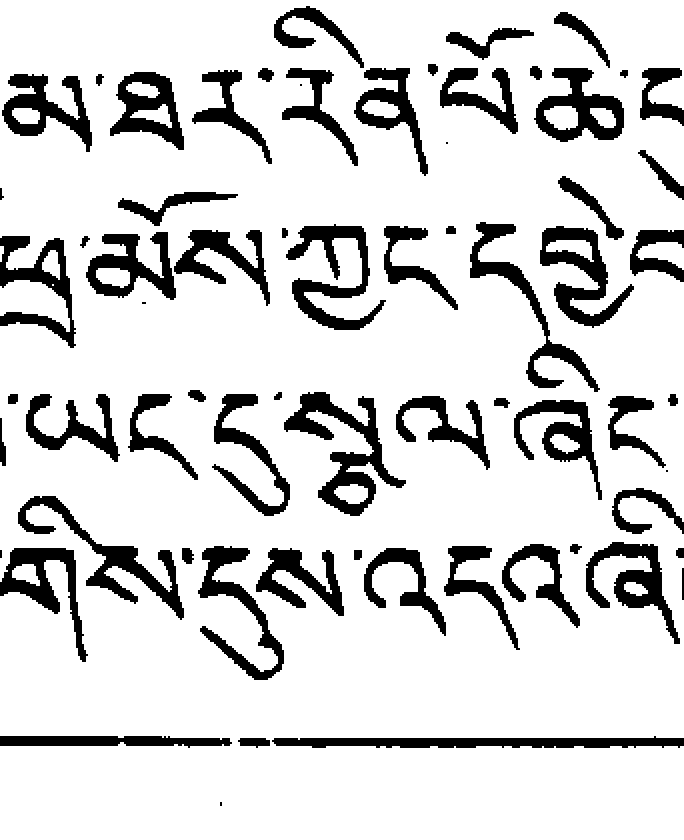 མ་ཐར་རིན་པོ་ཆེ་
ཕྲ་མོས་ཀྱང་དབྱེ
་ཡང་དུ་སྩལ་ཞིང་
གིས་དུས་འདའ་ཞི